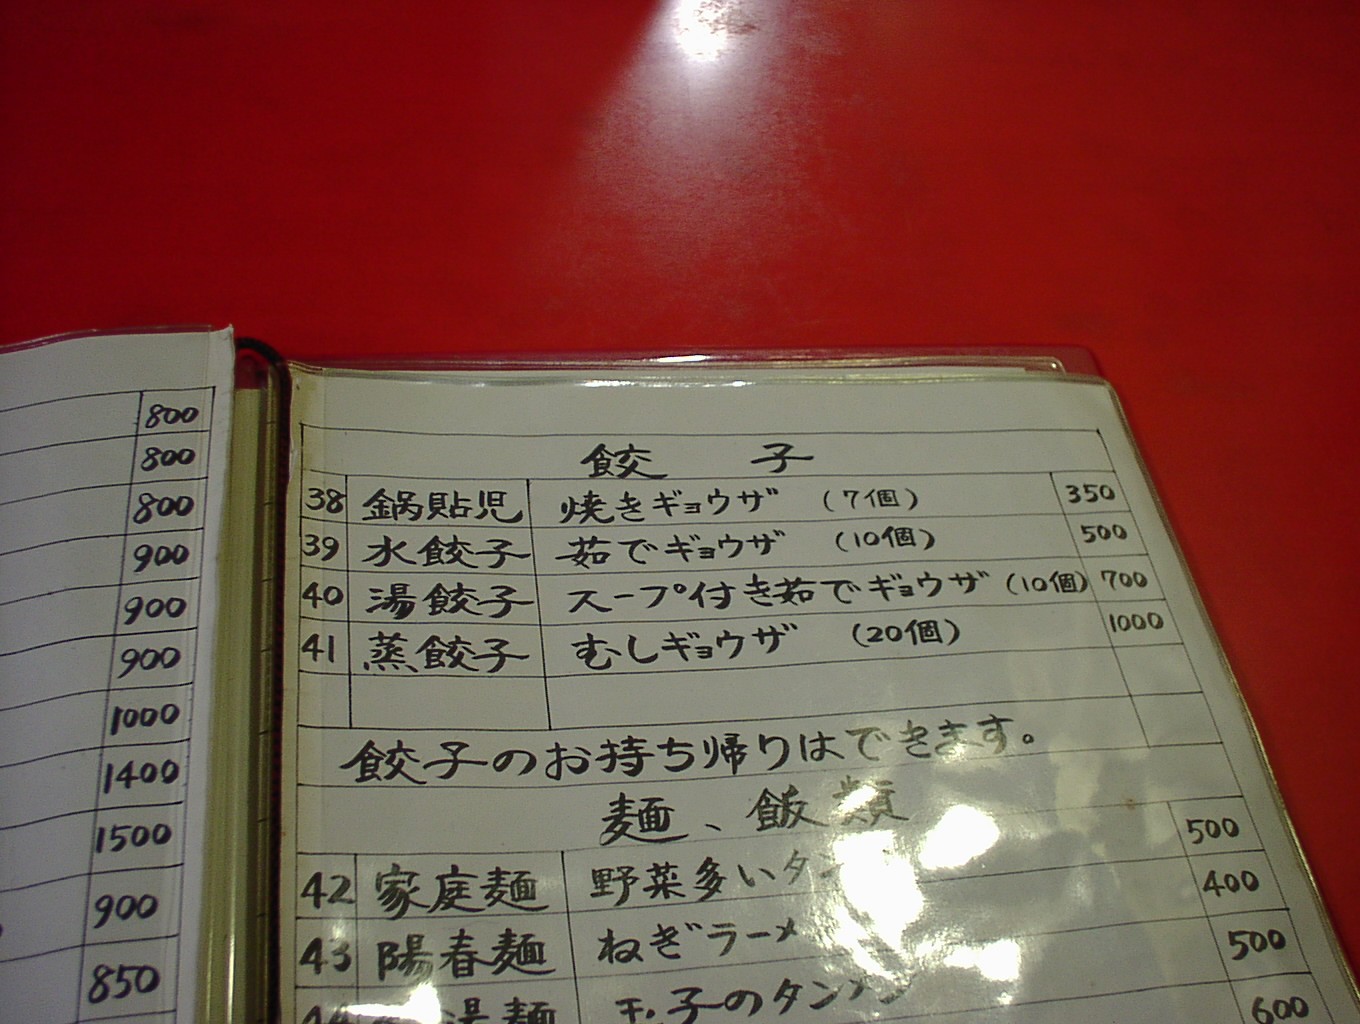 800
800
800
900
900
900
1000
1400
1500
900
850
餃 子
38 鍋貼児 焼きギョウザ (7個) 350
39 水餃子 茹でギョウザ (10個) 500
40 湯餃子 スープ付き茹でギョウザ (10個) 700
41 蒸餃子 むしギョウザ (20個) 1000
餃子のお持ち帰りはできます。
麺、飯類
42 家庭麺 野菜多いタン 500
43 陽春麺 ねぎラーメ 400
湯麺 玉子のタンメン 500
600